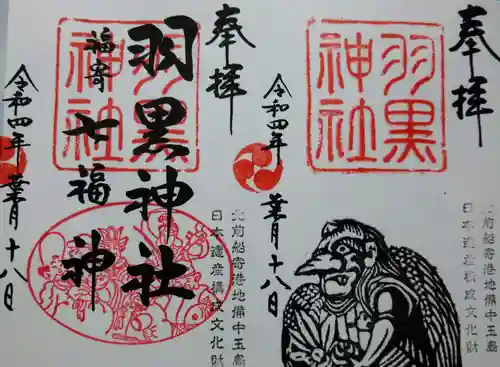 奉拝
羽黒神社
福寄
七福神
令和四年 葉月 十八日
羽黒
神社
北前船寄港地備中玉島
日本遺産構成文化財
奉拝
令和四年 葉月 十八日
羽黒
神社
北前船寄港地備中玉島
日本遺産構成文化財